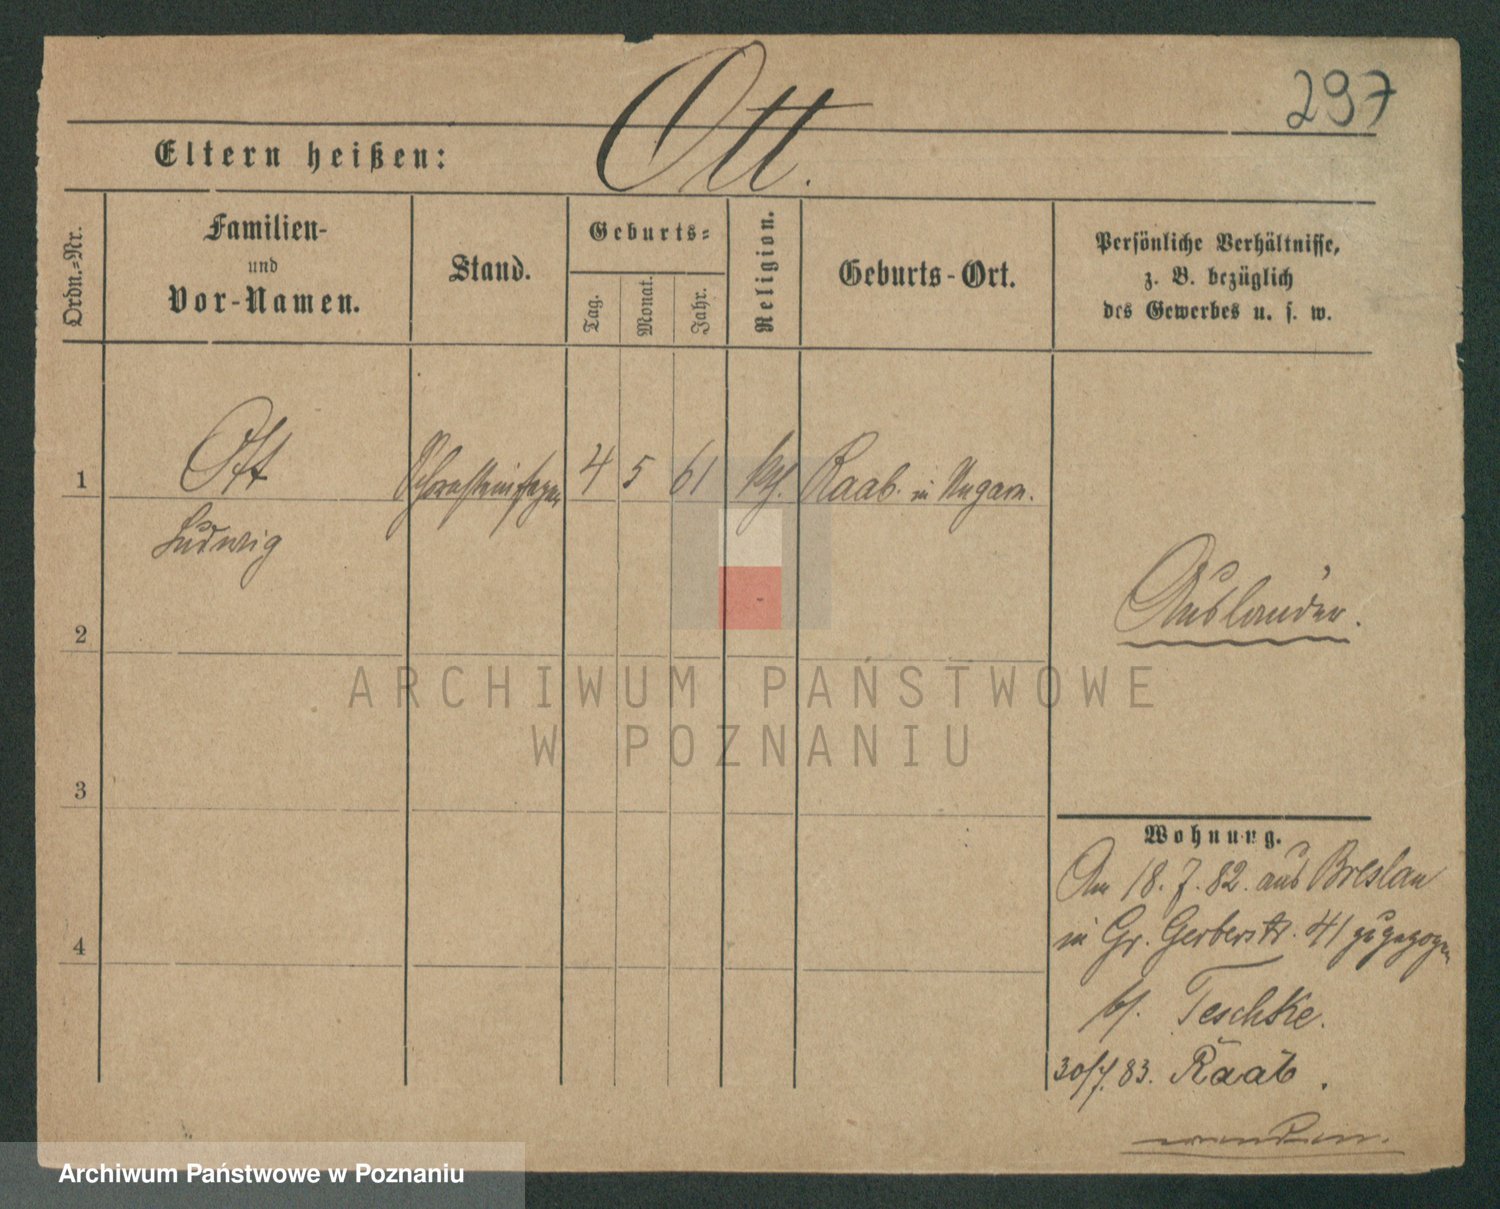 297
Ott.
Eltern heißen:
Ordn.-Nr.
Familien-
und
Vor-Namen.
Stand.
Geburts-
Tag.
Monat.
Jahr.
Religion.
Geburts-Ort.
Persönliche Verhältnisse,
z. B. bezüglich
des Gewerbes u. s. w.
1
Ott
Ludwig
Schornsteinfeger
4
5
61
kth.
Raab. in Ungarn.
Ausländer.
2
3
4
Wohnung.
Am 18. 7. 82. aus Breslau
in Gr. Gerberstr. 41 zugezogen
bf. Teschke.
30/7. 83. Raab.
wenden.
ARCHIWUM PAŃSTWOWE
W POZNANIU
Archiwum Państwowe w Poznaniu